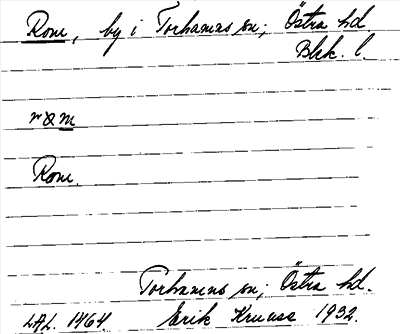 Rom, by i Torhamns sn; Östra hd
Blek. l.
Rom.
Torhamns sn; Östra hd.
LAL. 1464 Erik Kruuse 1932.